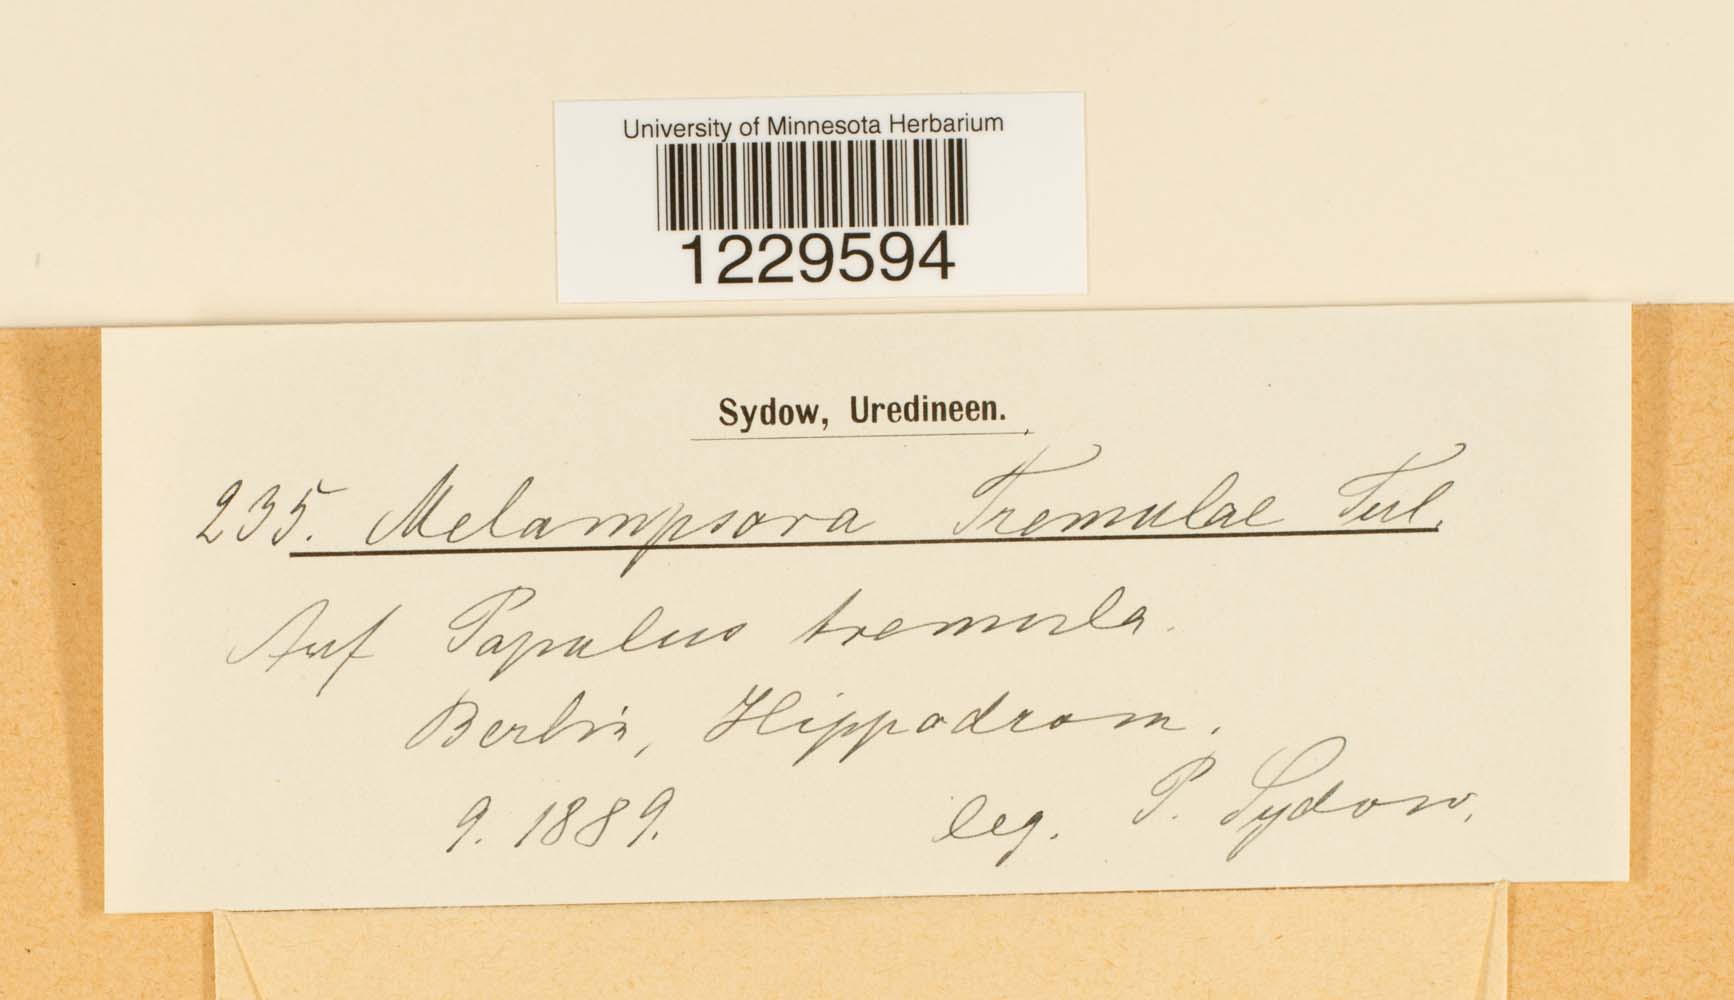 University of Minnesota Herbarium
1229594
Sydow, Uredineen.
235. Melampsora Tremulae Tul.
Auf Populus tremula.
Berlin, Hippodrom.
9. 1889. leg. P. Sydow.